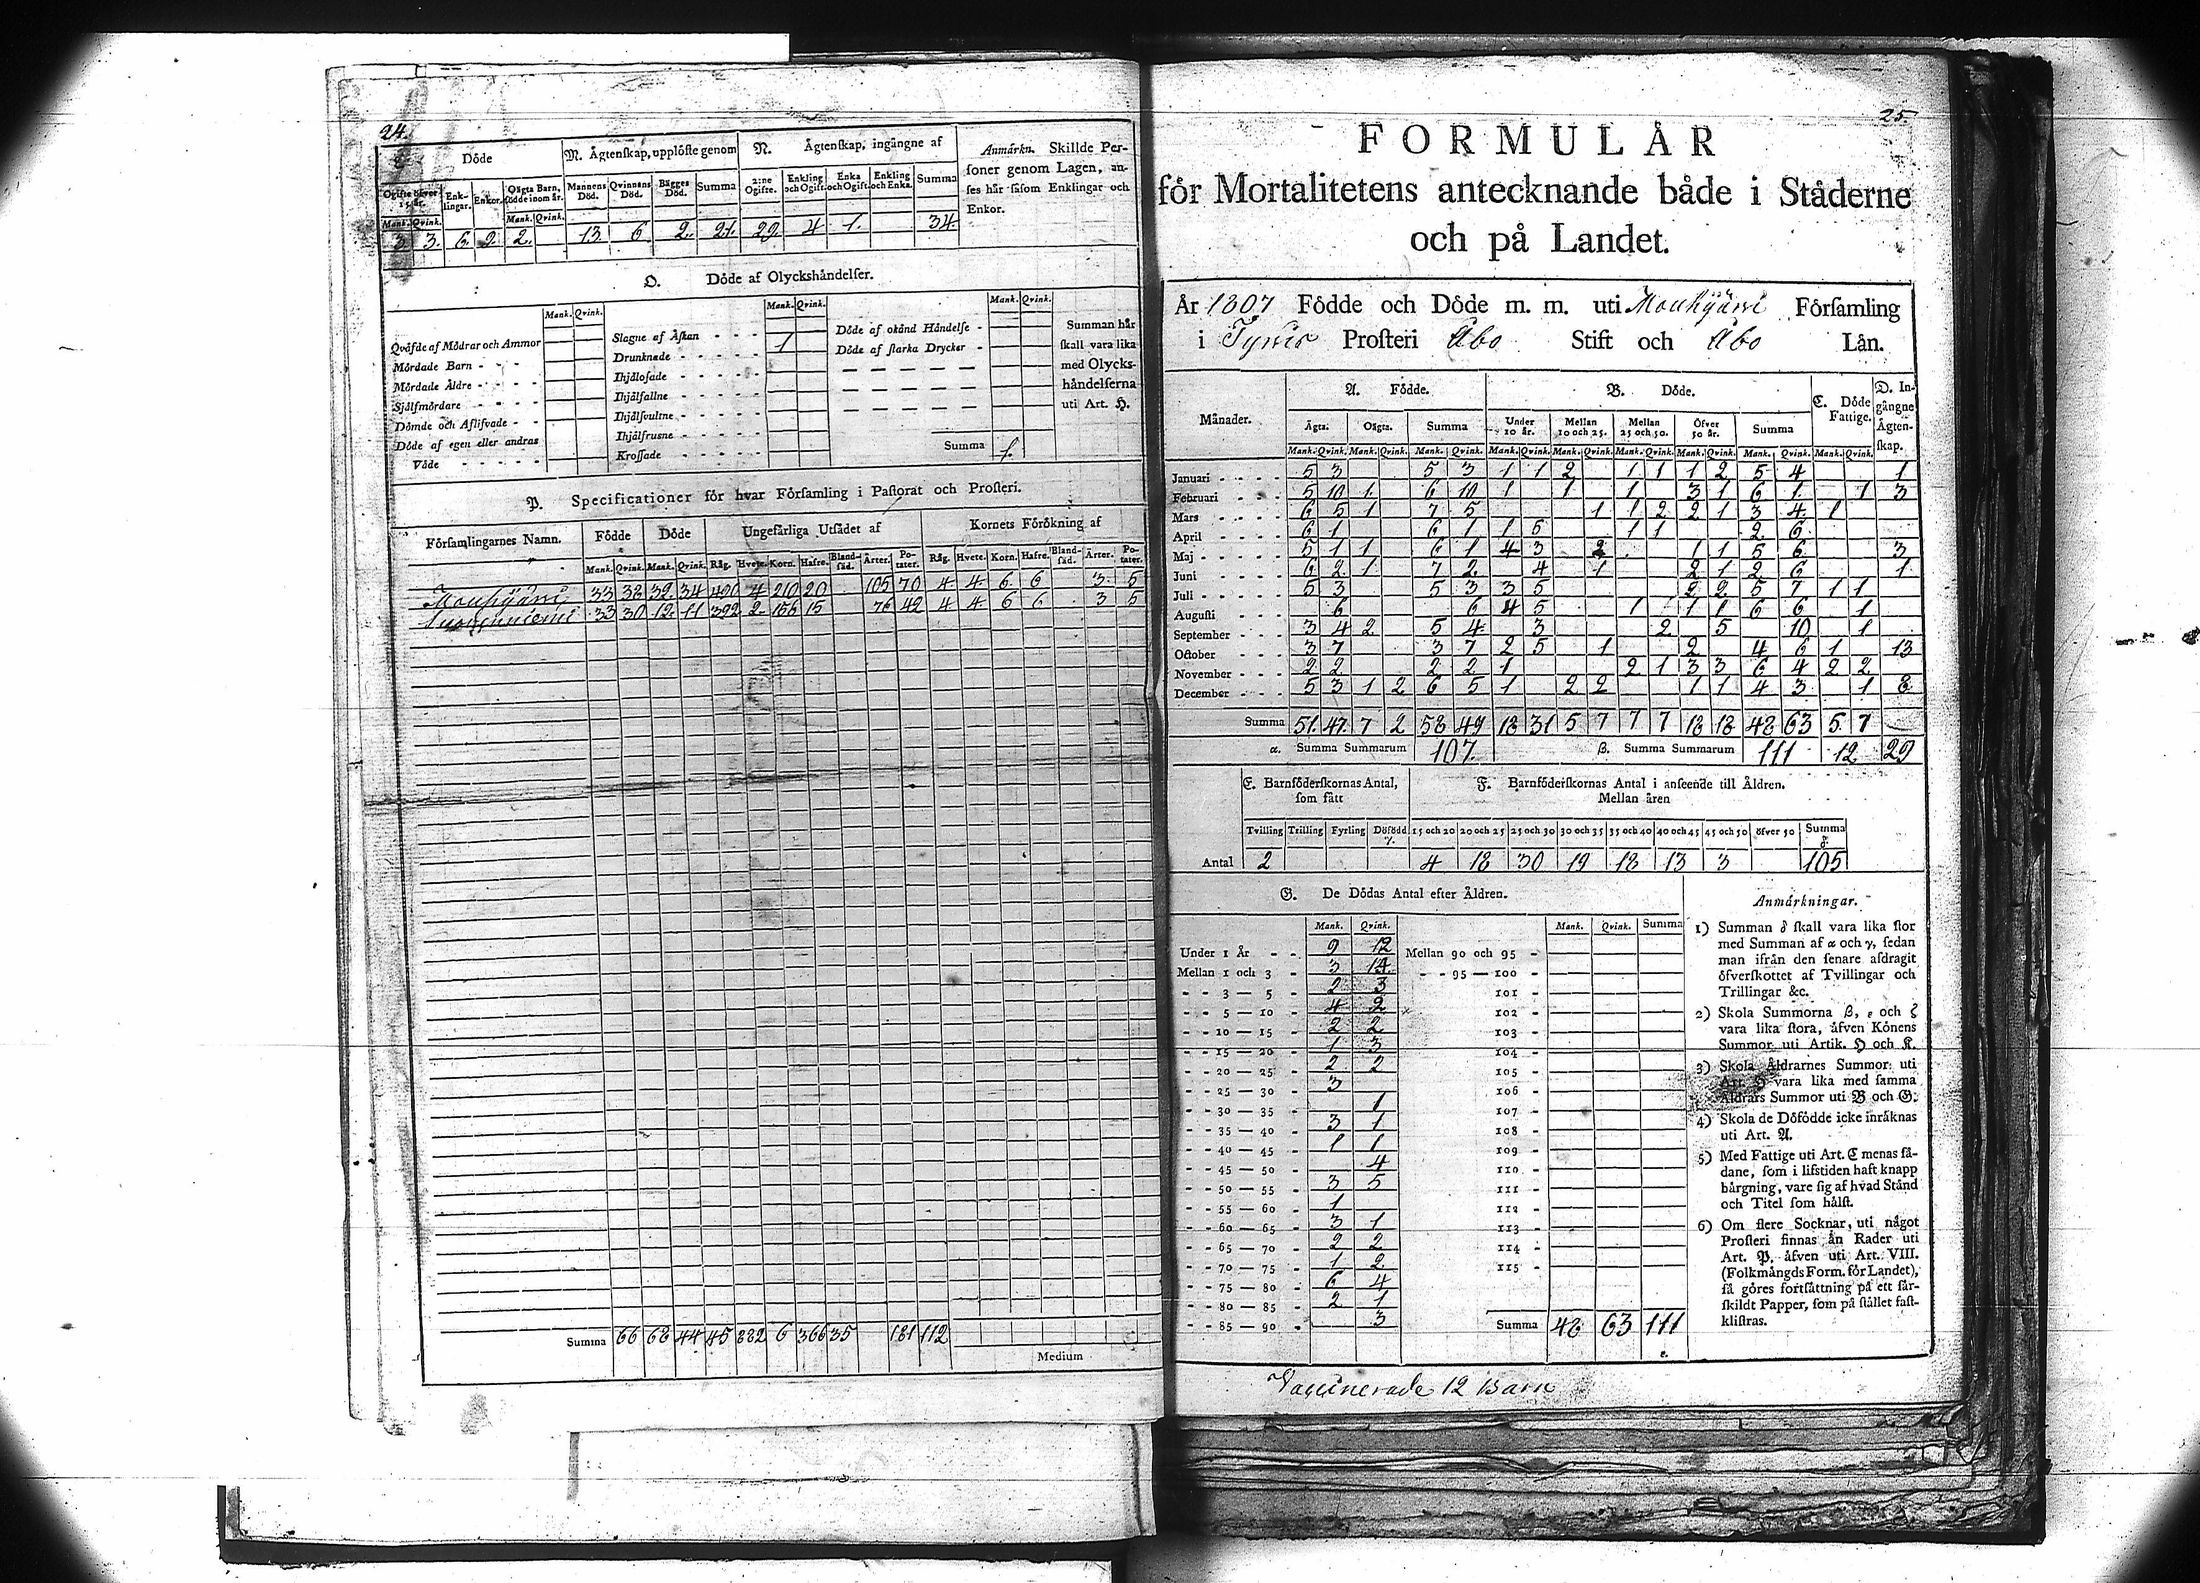 24.
L. Döde
M. Ägtenskap, upplöste genom
N. Ägtenskap, ingångne af
Anmärkn. Skillde Per-
soner genom Lagen, an-
ses här såsom Enklingar och
Enkor.
Ogifte öfver 15 år. Enk-lingar. Enkor. Oägta Barn, födde inom år. Mannens Död. Qvinnans Död. Bägges Död. Summa 2:ne Ogifte. Enkling och Ogift. Enka och Ogift. Enkling och Enka. Summa
Mank. Qvink. Mank. Qvink.
3 3. 6. 2. 2. 13 6 2. 21. 29. 4 1. 34.
O. Döde af Olyckshändelser.
Mank. Qvink. Mank. Qvink. Mank. Qvink.
Qväfde af Mödrar och Ammor
Mördade Barn
Mördade Äldre
Sjelfmördare
Dömde och Aflifvade
Döde af egen eller andras
Våde
Slagne af Åskan
Drunknade 1
Ihjälosade
Ihjälfallne
Ihjälsvultne
Ihjälfrusne
Krossade
Döde af okänd Händelse
Döde af starka Drycker
Summa 1.
Summan här
skall vara lika
med Olycks-
händelserna
uti Art. H.
P. Specificationer för hvar Församling i Pastorat och Prosteri.
Församlingarnes Namn. Födde Döde Ungefärliga Utsädet af Kornets Förökning af
Mank. Qvink. Mank. Qvink. Råg. Hvete. Korn. Hafre. Bland-säd. Ärter. Po-tater. Råg. Hvete. Korn. Hafre. Bland-säd. Ärter. Po-tater.
Mouhijärvi 33 38 32. 34 490 4 210 20 105 70 4 4 6 6 3 5
Suoniemi 33 30 12 11 392 2 156 15 76 42 4 4 6 6 3 5
Summa 66 68 44 45 882 6 366 35 181 112
Medium
25.
FORMULÄR
för Mortalitetens antecknande både i Städerne
och på Landet.
År 1807 Födde och Döde m. m. uti Mouhijärvi Församling
i Tyrvis Prosteri Åbo Stift och Åbo Län.
Månader. A. Födde. B. Döde. C. Döde Fattige. D. In-gångne Ägten-skap.
Ägta. Oägta. Summa Under 10 år. Mellan 10 och 25. Mellan 25 och 50. Öfver 50 år. Summa
Mank. Qvink. Mank. Qvink. Mank. Qvink. Mank. Qvink. Mank. Qvink. Mank. Qvink. Mank. Qvink. Mank. Qvink. Mank. Qvink.
Januari 5 3 5 3 1 1 2 1 1 1 2 5 4 1
Februari 5 10 1 6 10 1 1 1 3 1 6 1 1 3
Mars 6 5 1 7 5 1 1 2 2 1 3 4 1
April 6 1 6 1 1 5 1 1 2 6
Maj 5 1 1 6 1 4 3 2 1 1 5 6 3
Juni 6 2 1 7 2 4 1 2 1 2 6 1
Juli 5 3 5 3 3 5 2 2 5 7 1 1
Augusti 6 6 4 5 1 1 1 6 6 1
September 3 4 2 5 4 3 2 5 10 1
October 3 7 3 7 2 5 1 2 4 6 1 13
November 2 2 2 2 1 2 1 3 3 6 4 2 2
December 5 3 1 2 6 5 1 2 2 1 1 4 3 1 8
Summa 51. 47. 7 2 58 49 18 31 5 7 7 7 18 18 48 63 5 7
α. Summa Summarum 107. β. Summa Summarum 111 12 29
E. Barnföderskornas Antal, som fått
F. Barnföderskornas Antal i anseende till Åldren.
Mellan åren
Tvilling Trilling Fyrling Dödfödd γ. 15 och 20 20 och 25 25 och 30 30 och 35 35 och 40 40 och 45 45 och 50 öfver 50 Summa δ.
Antal 2 4 18 30 19 18 13 3 105
G. De Dödas Antal efter Åldren.
Mank. Qvink. Mank. Qvink. Summa
Under 1 År 9 12
Mellan 1 och 3 3 14
3 — 5 2 3
5 — 10 4 2
10 — 15 2 2
15 — 20 1 3
20 — 25 2 2
25 — 30 3
30 — 35 1
35 — 40 3 1
40 — 45 1 1
45 — 50 4
50 — 55 3 5
55 — 60 1
60 — 65 3 1
65 — 70 2 2
70 — 75 1 2
75 — 80 6 4
80 — 85 2 1
85 — 90 3
Mellan 90 och 95
95 — 100
101
102
103
104
105
106
107
108
109
110
111
112
113
114
115
Summa 48 63 111
ε.
Anmärkningar.
1) Summan δ skall vara lika stor
med Summan af α och γ, sedan
man ifrån den senare afdragit
öfverskottet af Tvillingar och
Trillingar &c.
2) Skola Summorna β, ε och ζ
vara lika stora, äfven Könens
Summor uti Artik. H och K.
3) Skola Åldrarnes Summor uti
Art. H vara lika med samma
Åldrars Summor uti B och G.
4) Skola de Dödfödde icke inräknas
uti Art. A.
5) Med Fattige uti Art. C menas så-
dane, som i lifstiden haft knapp
bärgning, vare sig af hvad Stånd
och Titel som hälst.
6) Om flere Socknar, uti något
Prosteri finnas än Rader uti
Art. P, äfven uti Art. VIII.
(Folkmängds Form. för Landet),
så göres fortsättning på ett sär-
skildt Papper, som på stället fast-
klistras.
Vaccinerade 12 Barn